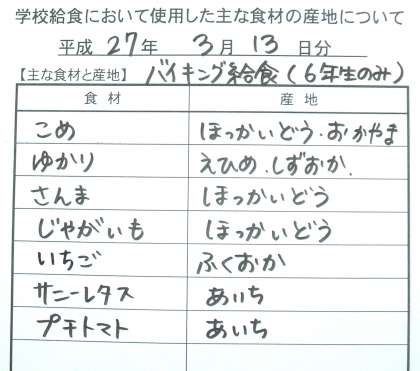 学校給食において使用した主な食材の産地について
平成 27年 3月 13 日分
【主な食材と産地】 バイキング給食(6年生のみ)
食材 産地
こめ ほっかいどう・おかやま
ゆかり えひめ、しずおか、
さんま ほっかいどう
じゃがいも ほっかいどう
いちご ふくおか
サニーレタス あいち
プチトマト あいち